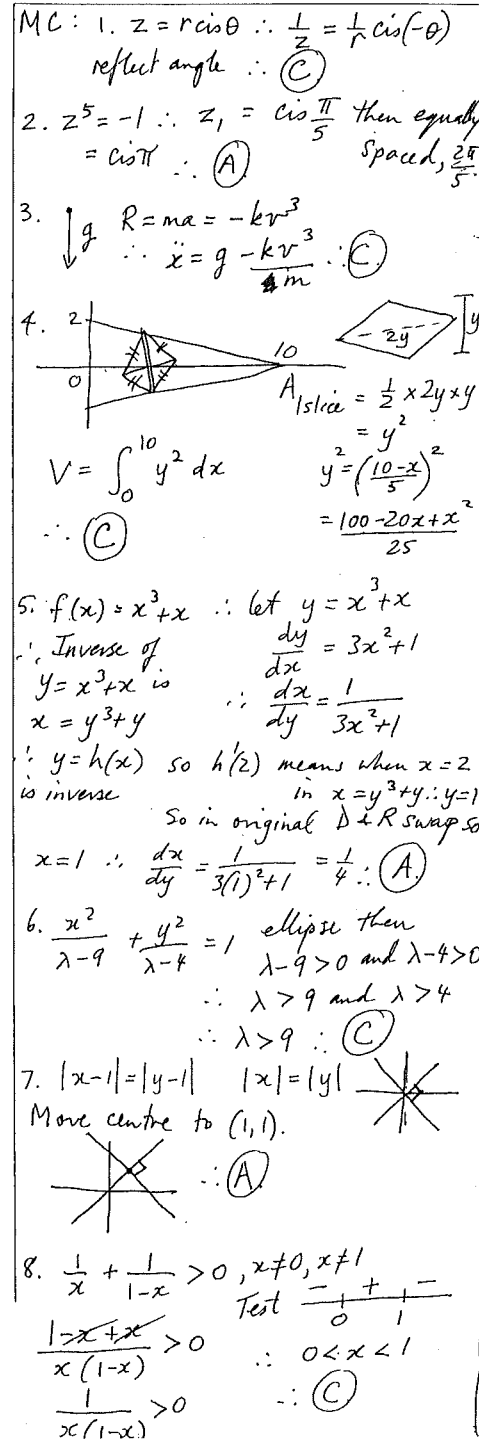 MC: 1. z = r cis θ ∴ 1/z = 1/r cis(-θ)
reflect angle ∴ C
2. z⁵ = -1 ∴ z₁ = cis π/5 then equally
= cis π ∴ A spaced, 2π/5.
3. g R = ma = -kv³
∴ ẍ = g - kv³/m ∴ C
4. 2 0 10 2y y
A 1slice = 1/2 × 2y × y
= y²
V = ∫₀¹⁰ y² dx y² = ((10-x)/5)²
∴ C = (100-20x+x²)/25
5. f(x) = x³+x ∴ let y = x³+x
∴ Inverse of dy/dx = 3x²+1
y = x³+x is
x = y³+y ∴ dx/dy = 1/(3x²+1)
∴ y = h(x) so h'(2) means when x = 2
is inverse in x = y³+y ∴ y=1
So in original D & R swap so
x = 1 ∴ dx/dy = 1/(3(1)²+1) = 1/4 ∴ A
6. x²/(λ-9) + y²/(λ-4) = 1 ellipse then
λ-9>0 and λ-4>0
∴ λ>9 and λ>4
∴ λ>9 ∴ C
7. |x-1| = |y-1| |x| = |y|
Move centre to (1,1).
∴ A
8. 1/x + 1/(1-x) > 0, x≠0, x≠1
Test - + -
0 1
(1-x+x)/(x(1-x)) > 0 ∴ 0<x<1
1/(x(1-x)) > 0 ∴ C